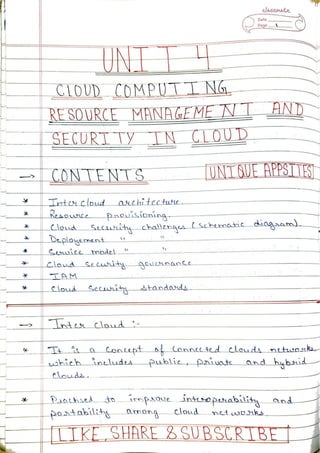 classmate
Date
Page 1
UNIT 4
CLOUD COMPUTING
RESOURCE MANAGEMENT AND
SECURITY IN CLOUD
→ CONTENTS UNIQUE APPSITES
* Inter cloud architecture.
* Resource provisioning.
* Cloud Security challenges (Schematic diagram).
* Deployement " "
* Service model " "
* Cloud Security governance
* IAM
* Cloud Security standards
→ Inter cloud :-
* It is a concept of connected clouds networks
which includes public, private and hybrid
clouds.
* Practised to improve interoperability and
portability among cloud networks.
LIKE, SHARE & SUBSCRIBE